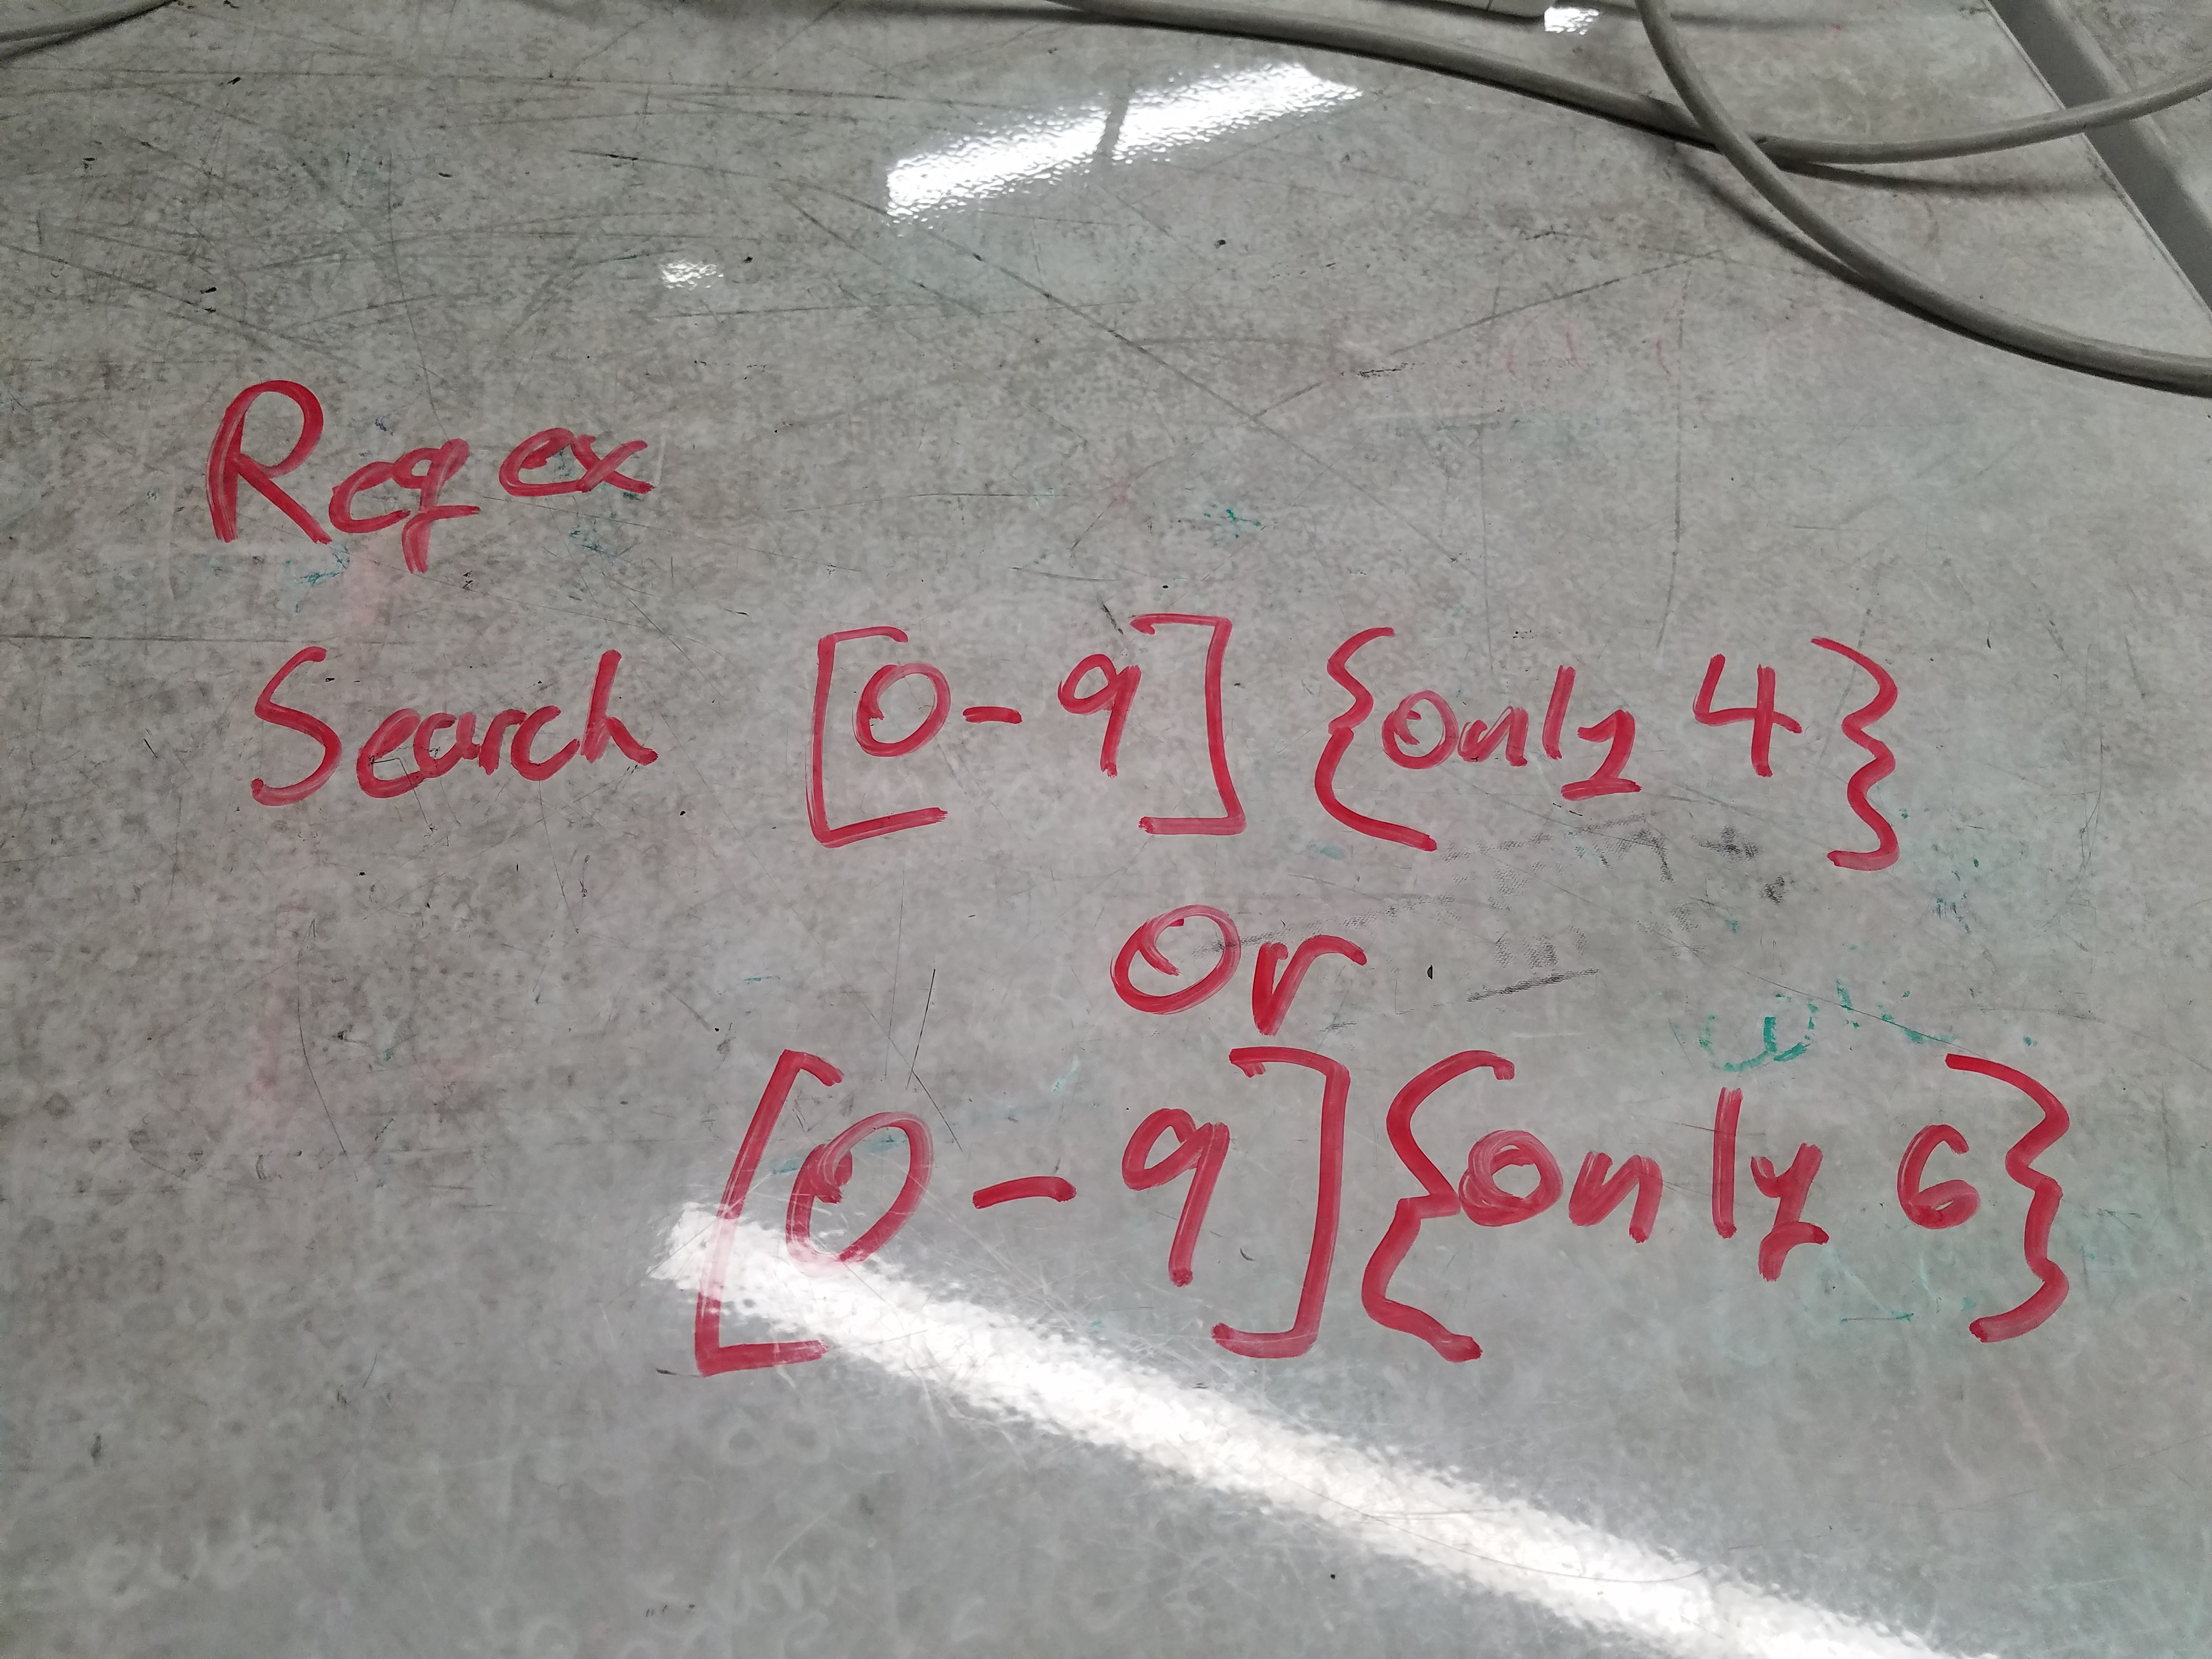 Regex
Search [0-9] {only 4}
Or
[0-9] {only 6}